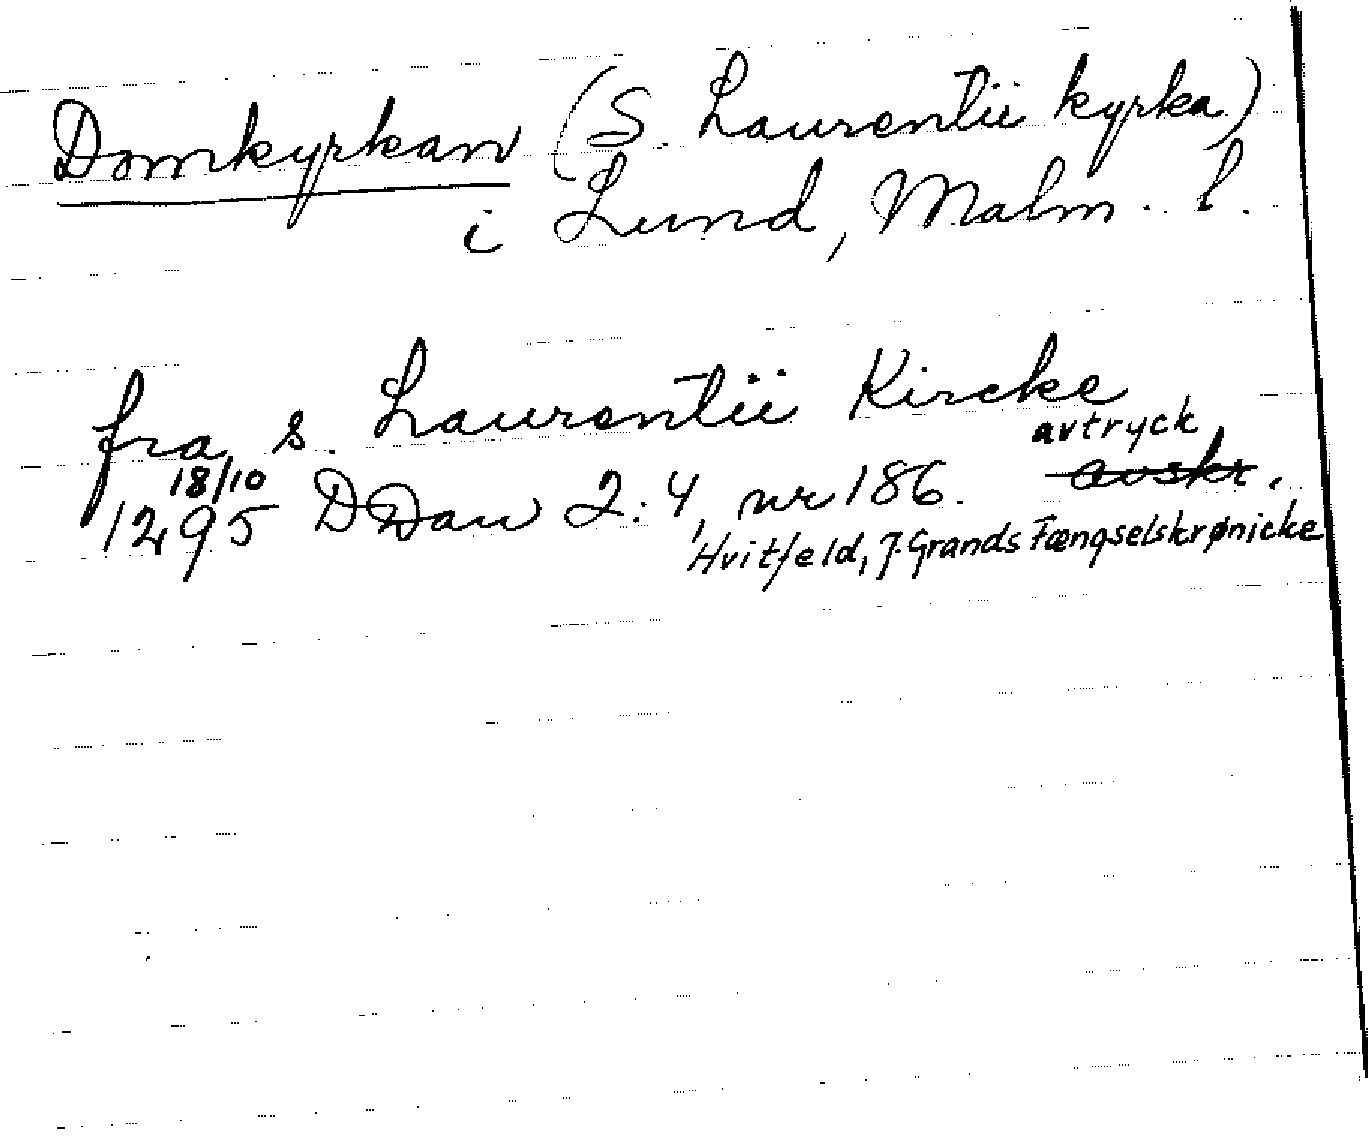 Domkyrkan (S. Laurentii kyrka)
i Lund, Malm. l.
fra s. Laurentii Kircke
18/10 avtryck
1295 DDan 2:4, nr 186. avskr.
Hvitfeld, J. Grands Fængselskrønicke